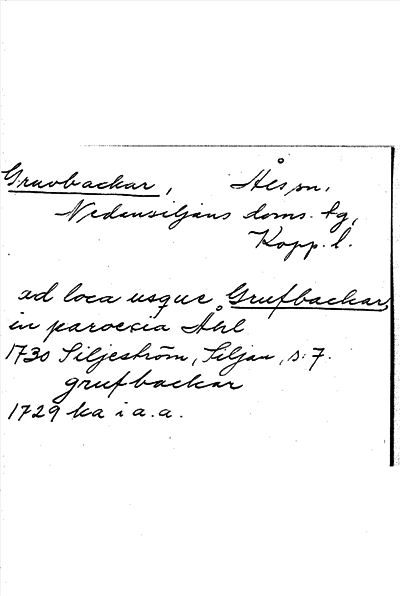 Gruvbackar, Åls sn,
Nedansiljans doms. tg,
Kopp. l.
ad loca usque Grufbackar
in paroecia Åhl
1730 Siljeström, Siljan, s: 7.
grufbackar
1729 ka i a. a.